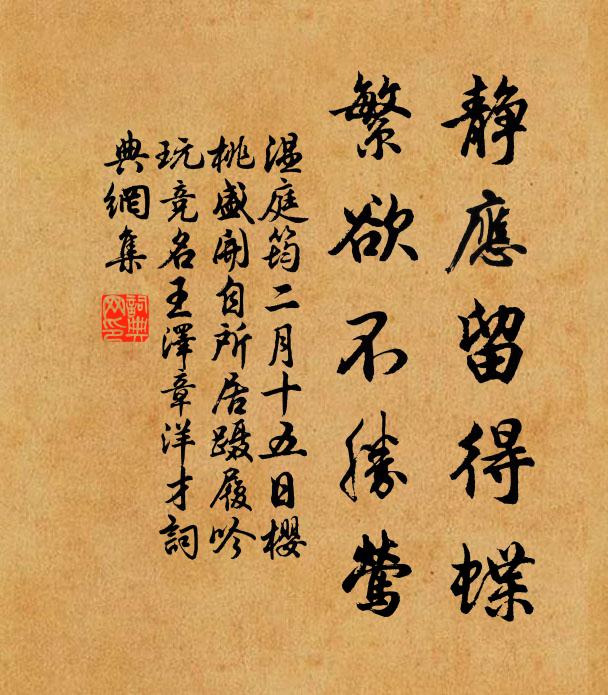 静應留得蝶
繁欲不勝鶯
溫庭筠二月十五日櫻
桃盛開自所居躡履吟
玩竞名王澤章洋才詞
典網集
詞典
网印